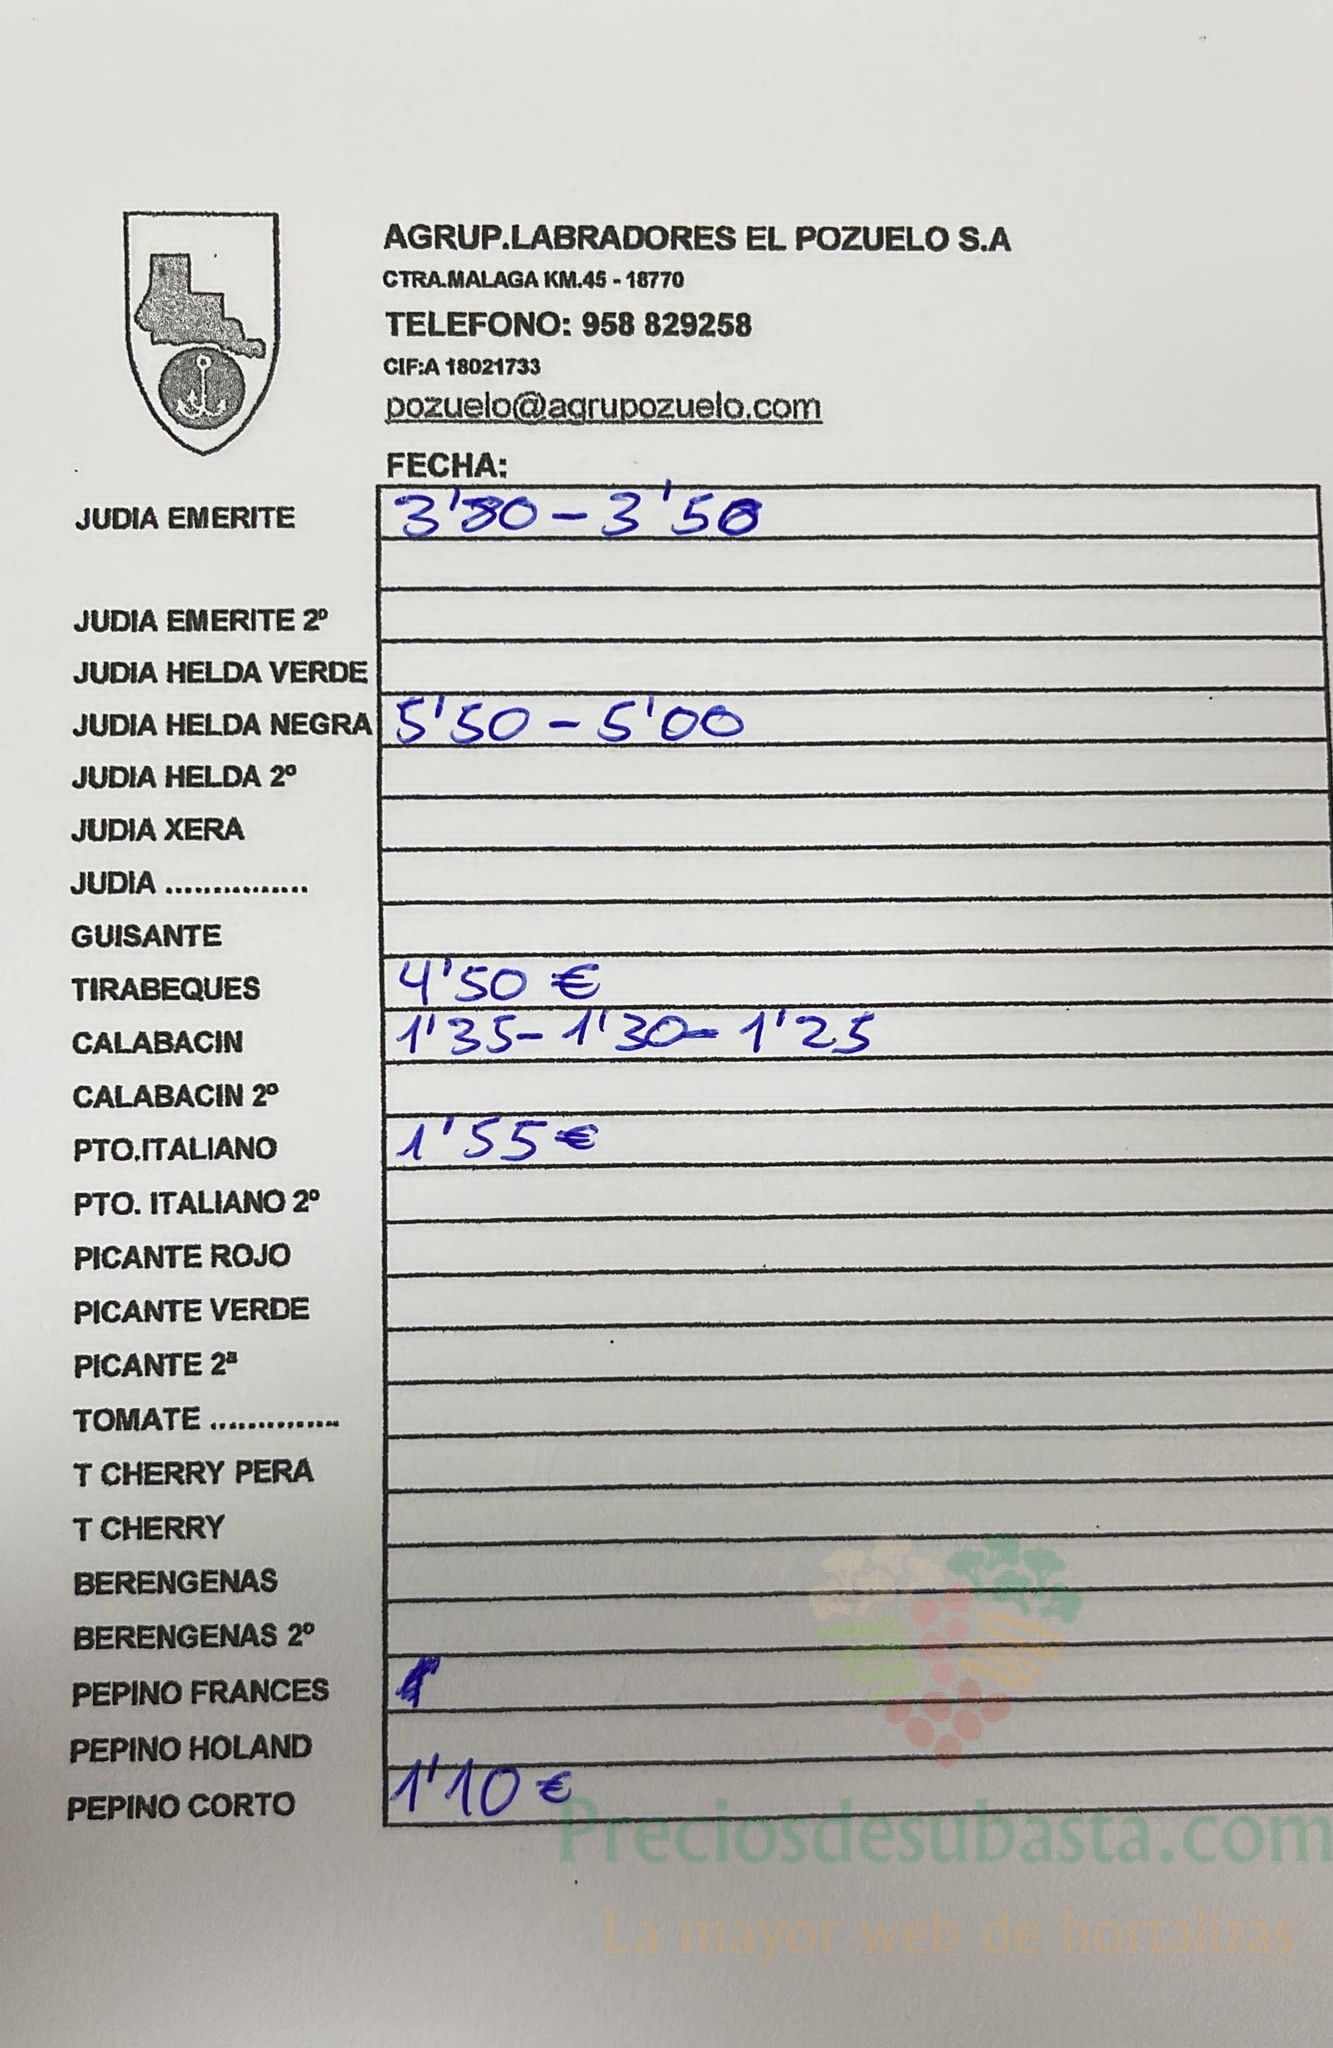 AGRUP.LABRADORES EL POZUELO S.A
CTRA.MALAGA KM.45 - 18770
TELEFONO: 958 829258
CIF:A 18021733
pozuelo@agrupozuelo.com
FECHA:
JUDIA EMERITE 3'80 - 3'50
JUDIA EMERITE 2º
JUDIA HELDA VERDE
JUDIA HELDA NEGRA 5'50 - 5'00
JUDIA HELDA 2º
JUDIA XERA
JUDIA ...............
GUISANTE
TIRABEQUES 4'50 €
CALABACIN 1'35 - 1'30 - 1'25
CALABACIN 2º
PTO.ITALIANO 1'55 €
PTO. ITALIANO 2º
PICANTE ROJO
PICANTE VERDE
PICANTE 2ª
TOMATE ..............
T CHERRY PERA
T CHERRY
BERENGENAS
BERENGENAS 2º
PEPINO FRANCES
PEPINO HOLAND
PEPINO CORTO 1'10 €
Preciosdesubasta.com
La mayor web de hortalizas